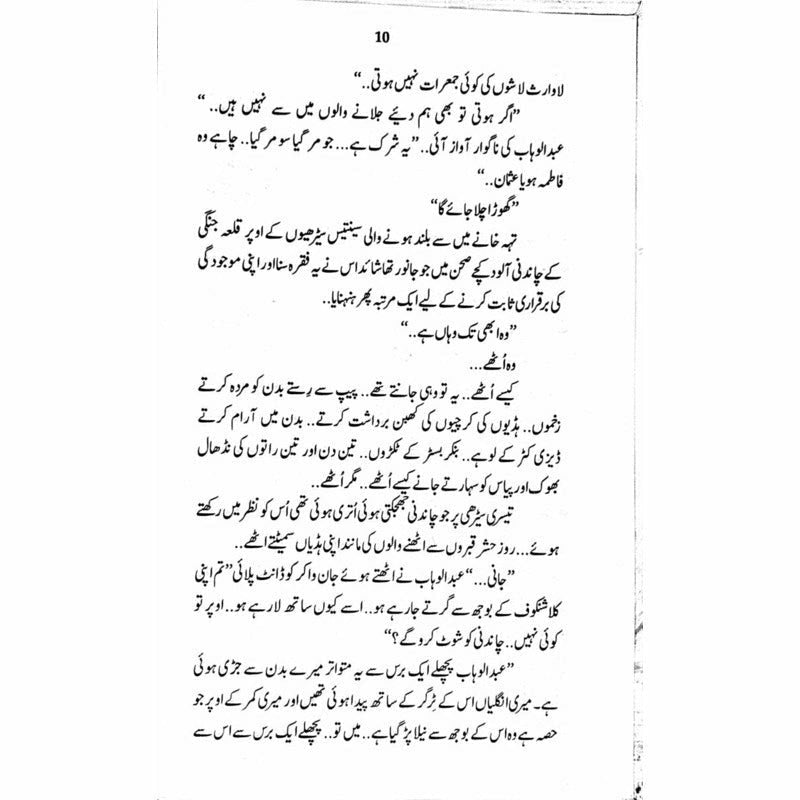 10
لاوارث لاشوں کی کوئی جمعرات نہیں ہوتی..“
”اگر ہوتی تو بھی ہم دیئے جلانے والوں میں سے نہیں ہیں.. “
عبدالوہاب کی ناگوار آواز آئی.. ”یہ شرک ہے... جو مر گیا سو مر گیا.. چاہے وہ
فاطمہ ہو یا عثمان..“
”گھوڑا چلا جائے گا“
تہہ خانے میں سے بلند ہونے والی سینتیس سیڑھیوں کے اوپر قلعہ جنگی
کے چاندنی آلود کچے صحن میں جو جانور تھا شائد اس نے یہ فقرہ سنا اور اپنی موجودگی
کی برقراری ثابت کرنے کے لیے ایک مرتبہ پھر ہنہنایا..
”وہ ابھی تک وہاں ہے..“
وہ اُٹھے...
کیسے اُٹھے.. یہ تو وہی جانتے تھے.. پیپ سے رِستے بدن کو مردہ کرتے
زخموں.. ہڈیوں کی کرچیوں کی کھبن برداشت کرتے.. بدن میں آرام کرتے
ڈیزی کٹر کے لوہے.. بنکر بسٹر کے ٹکڑوں.. تین دن اور تین راتوں کی نڈھال
بھوک اور پیاس کو سہارتے جانے کیسے اُٹھے.. مگر اُٹھے..
تیسری سیڑھی پر جو چاندنی جھجکتی ہوئی اُتری ہوئی تھی اُس کو نظر میں رکھتے
ہوئے... روز حشر قبروں سے اٹھنے والوں کی مانند اپنی ہڈیاں سمیٹتے اٹھے..
”جانی...“ عبدالوہاب نے اٹھتے ہوئے جان واکر کو ڈانٹ پلائی ”تم اپنی
کلاشنکوف کے بوجھ سے گرتے جا رہے ہو.. اسے کیوں ساتھ لا رہے ہو.. اوپر تو
کوئی نہیں.. چاندنی کو شوٹ کرو گے؟“
”عبدالوہاب پچھلے ایک برس سے یہ متواتر میرے بدن سے جڑی ہوئی
ہے۔ میری انگلیاں اس کے ٹرگر کے ساتھ پیدا ہوئی تھیں اور میری کمر کے اوپر جو
حصہ ہے وہ اس کے بوجھ سے نیلا پڑ گیا ہے.. میں تو.. پچھلے ایک برس سے اس سے